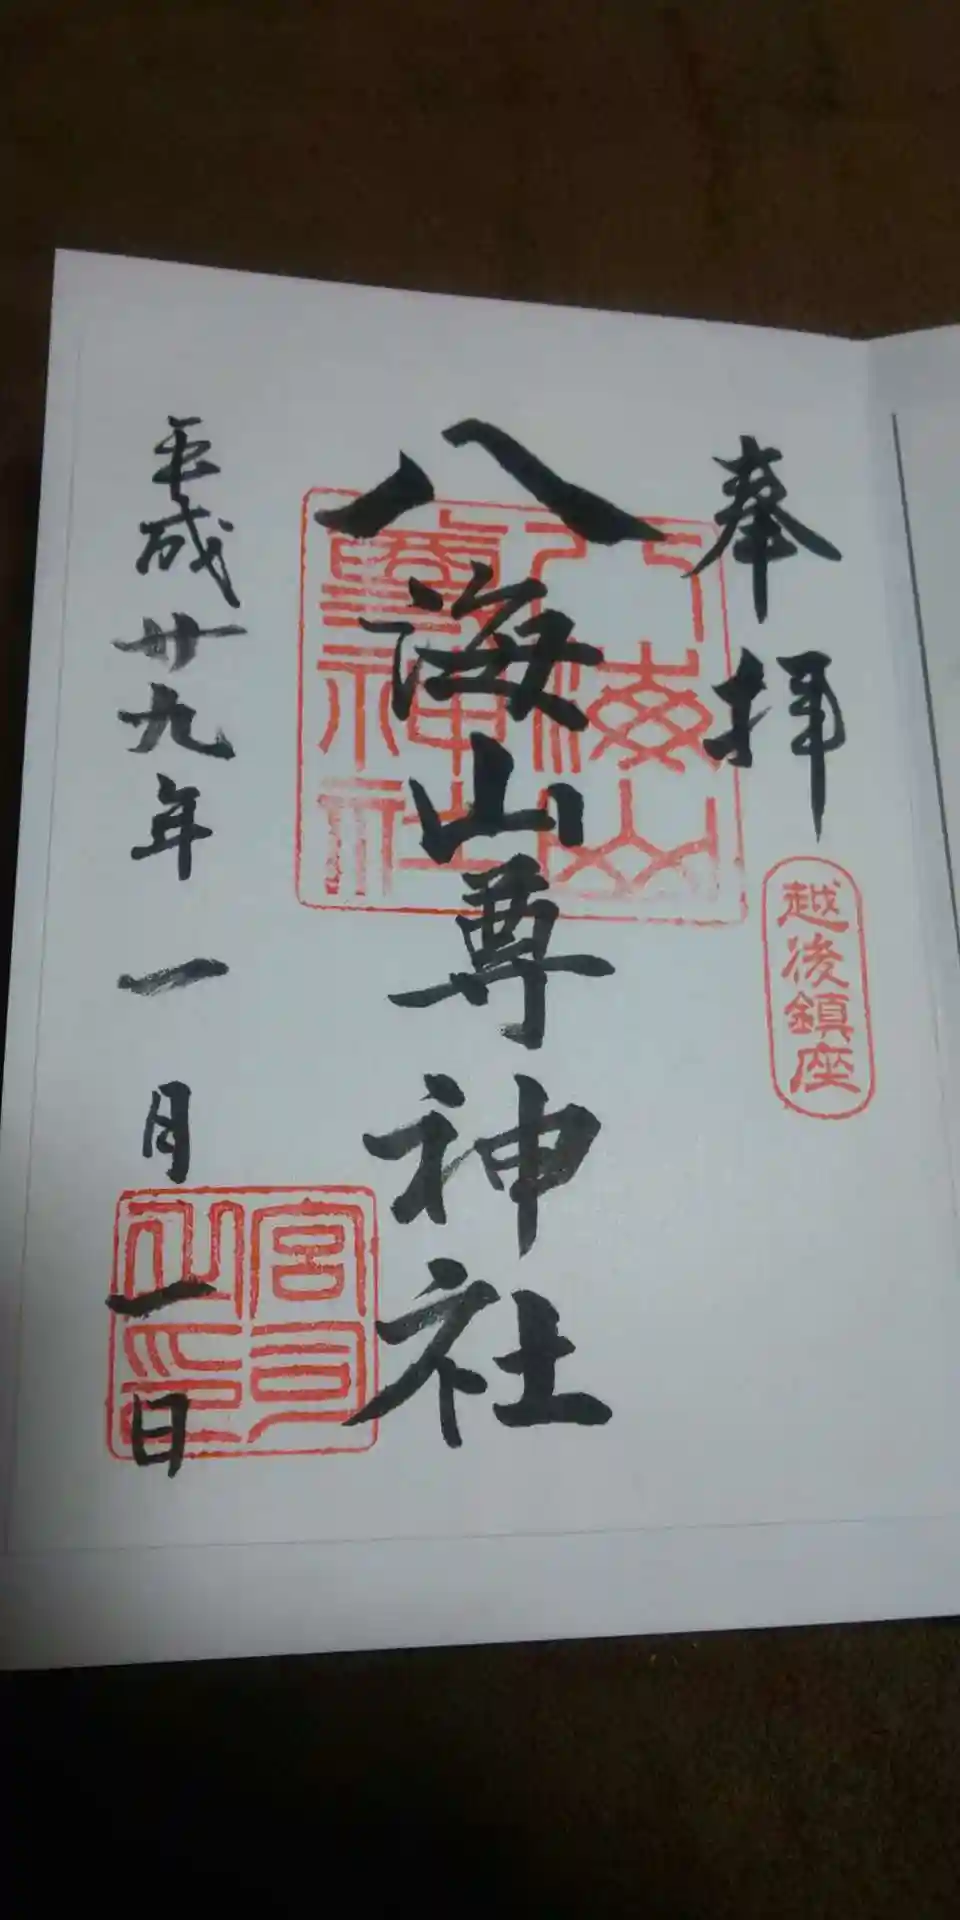 奉拝
越後鎮座
八海山尊神社
八海山
尊神社
平成廿九年一月一日
宮司
之印